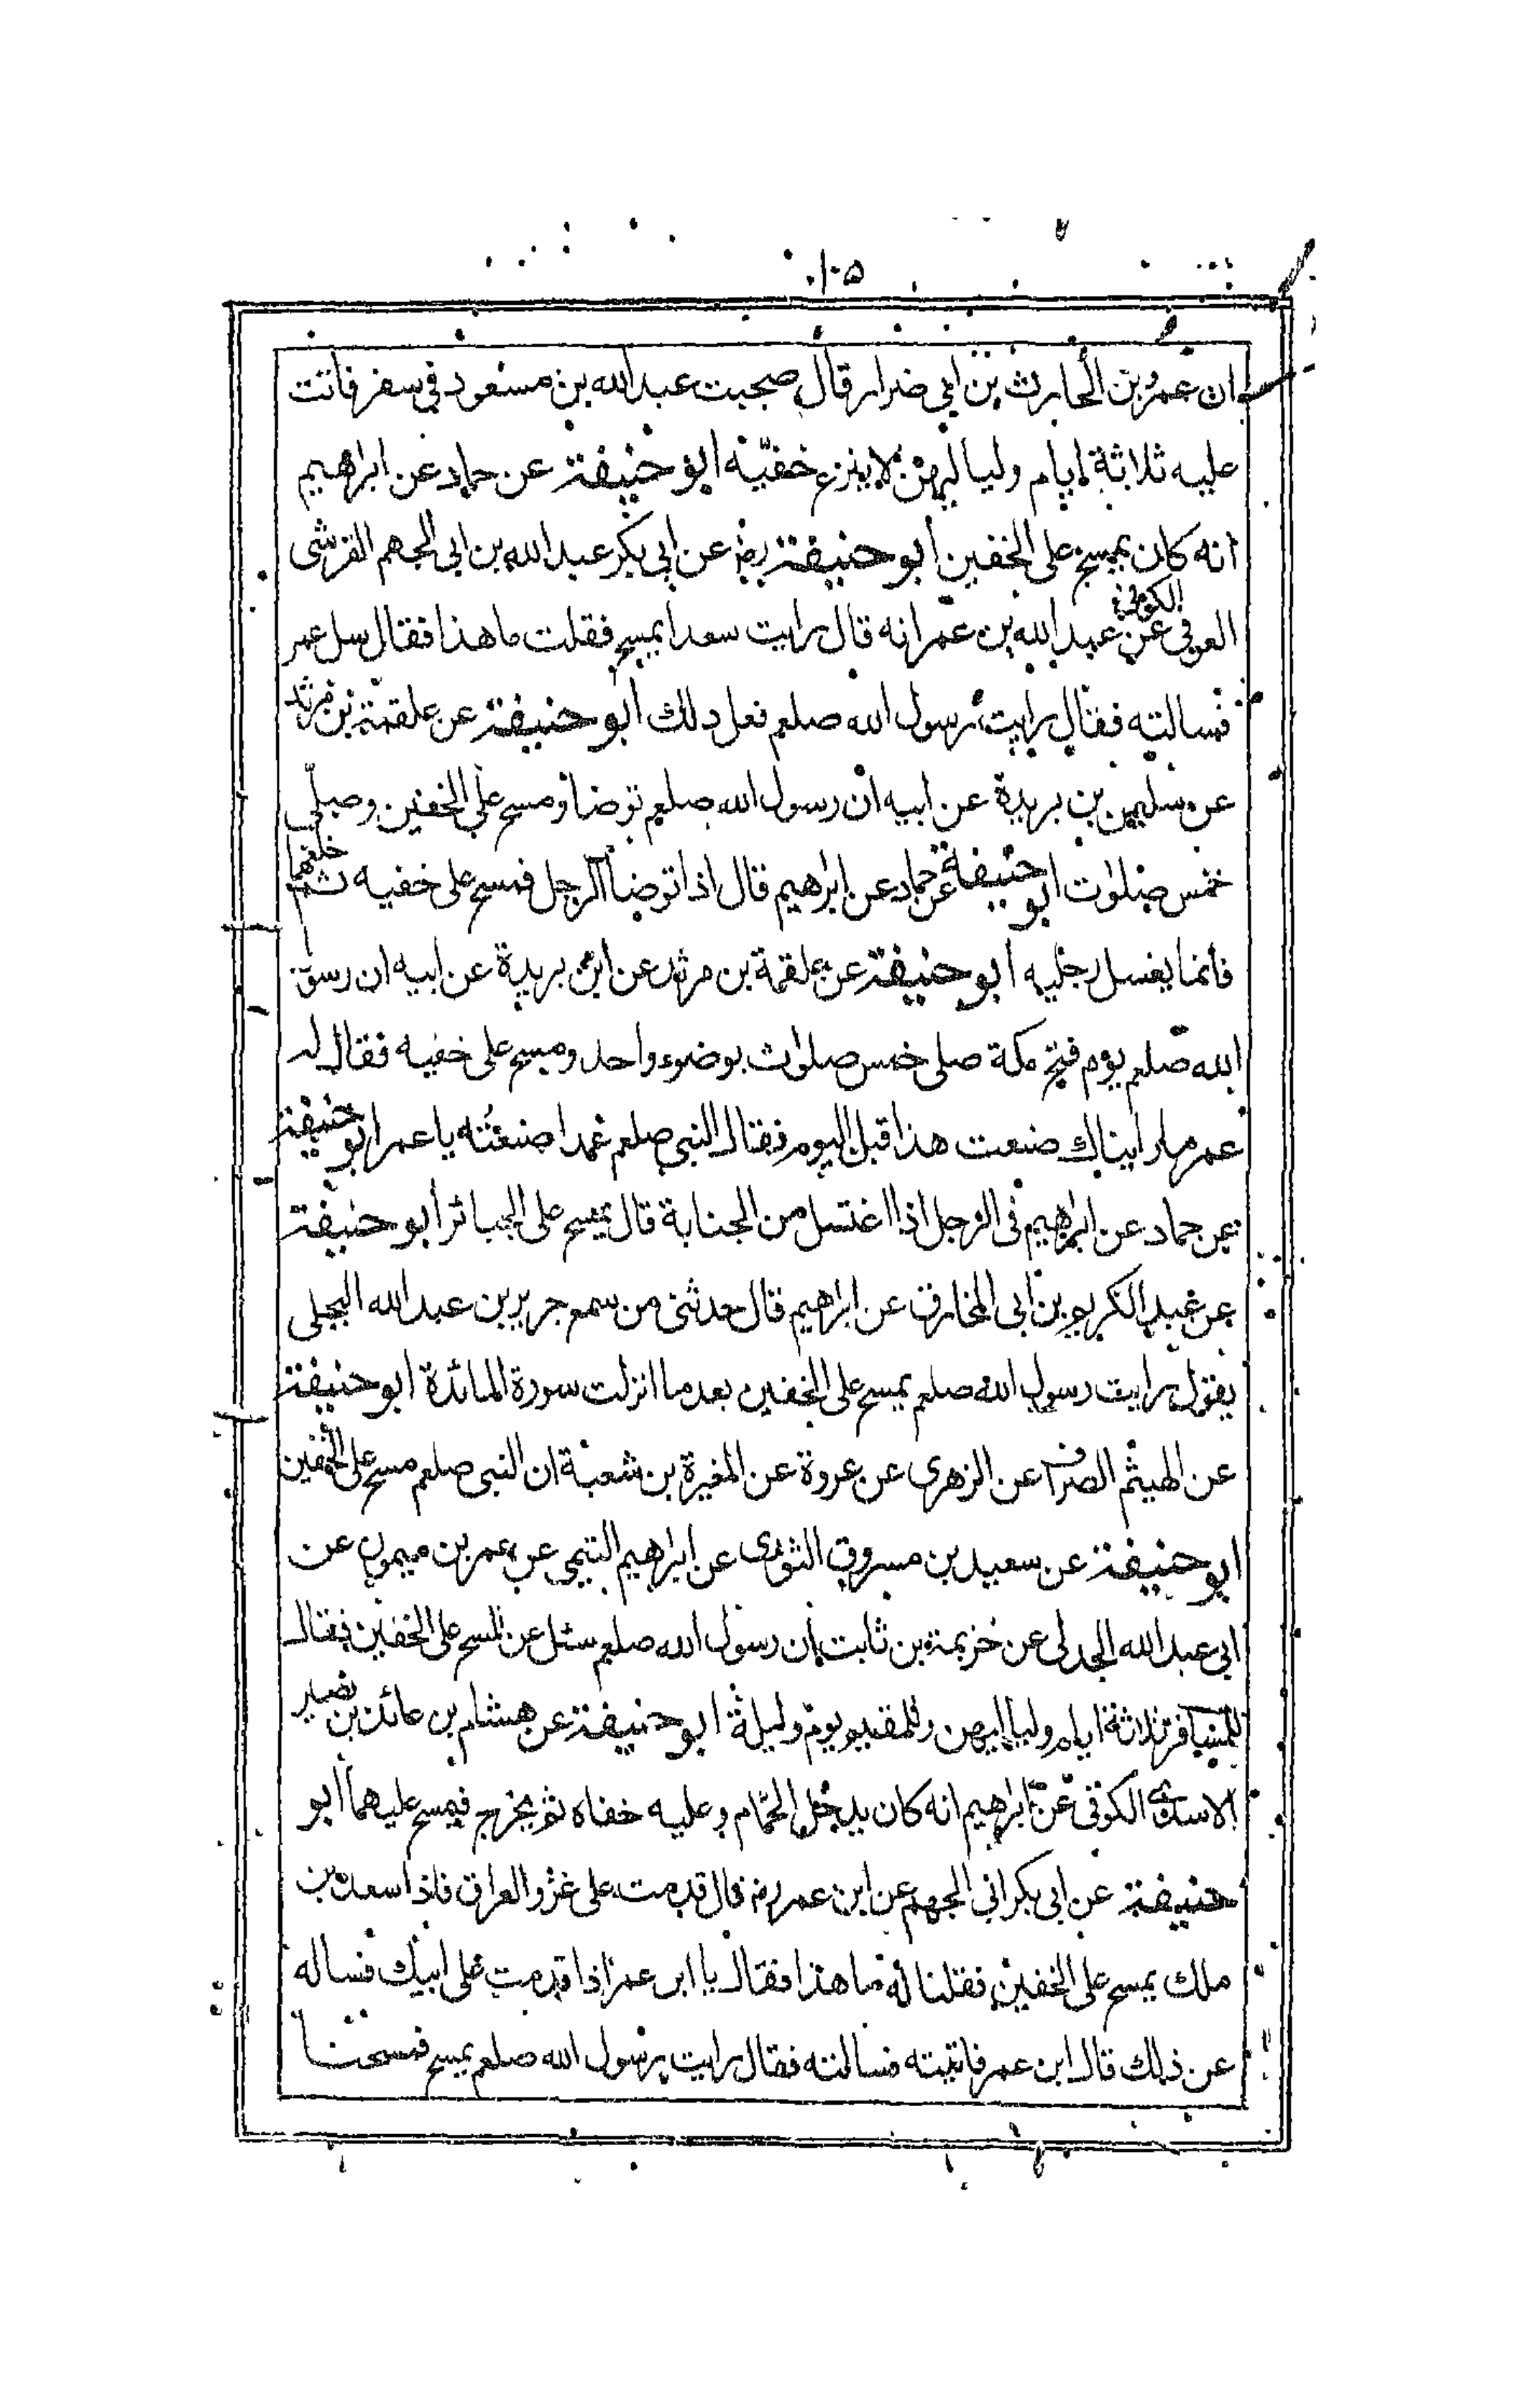 ١٠٥
ان عمرو بن الحارث بن ابي ضرار قال صحبت عبد الله بن مسعود في سفر فاتت
عليه ثلاثة ايام ولياليهن لا ينزع خفيه ابو حنيفة عن حماد عن ابراهيم
انه كان يمسح على الخفين ابو حنيفة رضـ عن ابي بكر عبد الله بن ابي الجهم القرشي
العوفي الكوفي عن عبد الله بن عمر انه قال رايت سعدا يمسح فقلت ما هذا فقال سل عمر
فسالته فقال رايت رسول الله صلعم فعل ذلك ابو حنيفة عن علقمة بن مرثد
عن سليمن بن بريدة عن ابيه ان رسول الله صلعم توضا ومسح على الخفين وصلى
خمس صلوات ابو حنيفة عن حماد عن ابراهيم قال اذا توضا الرجل فمسح على خفيه ثم خلعهما
فانما يغسل رجليه ابو حنيفة عن علقمة بن مرثد عن ابن بريدة عن ابيه ان رسو
الله صلعم يوم فتح مكة صلى خمس صلوات بوضوء واحد ومسح على خفيه فقال له
عمر ما رايناك صنعت هذا قبل اليوم فقال النبي صلعم عمدا صنعته يا عمر ابو حنيفة
عن حماد عن ابراهيم في الرجل اذا اغتسل من الجنابة قال يمسح على الجبائر ابو حنيفة
عن عبد الكريم بن ابي المخارق عن ابراهيم قال حدثني من سمع جرير بن عبد الله البجلي
يقول رايت رسول الله صلعم يمسح على الخفين بعد ما انزلت سورة المائدة ابو حنيفة
عن الهيثم الصراف عن الزهري عن عروة عن المغيرة بن شعبة ان النبي صلعم مسح على الخفين
ابو حنيفة عن سعيد بن مسروق الثوري عن ابراهيم التيمي عن عمر بن ميمون عن
ابي عبد الله الجدلي عن خزيمة بن ثابت ان رسول الله صلعم سئل عن المسح على الخفين فقال
للمسافر ثلاثة ايام ولياليهن وللمقيم يوم وليلة ابو حنيفة عن هشام بن عائذ بن نصير
الاسدي الكوفي عن ابراهيم انه كان يدخل الحمام وعليه خفاه ثم يخرج فيمسح عليهما ابو
حنيفة عن ابي بكر ابي الجهم عن ابن عمر رضـ قال قدمت على غزو العراق فاذا سعد بن
ملك يمسح على الخفين فقلنا له ما هذا فقال يا ابن عمر اذا قدمت على ابيك فساله
عن ذلك قال ابن عمر فاتيته فسالته فقال رايت رسول الله صلعم يمسح فمسحنا